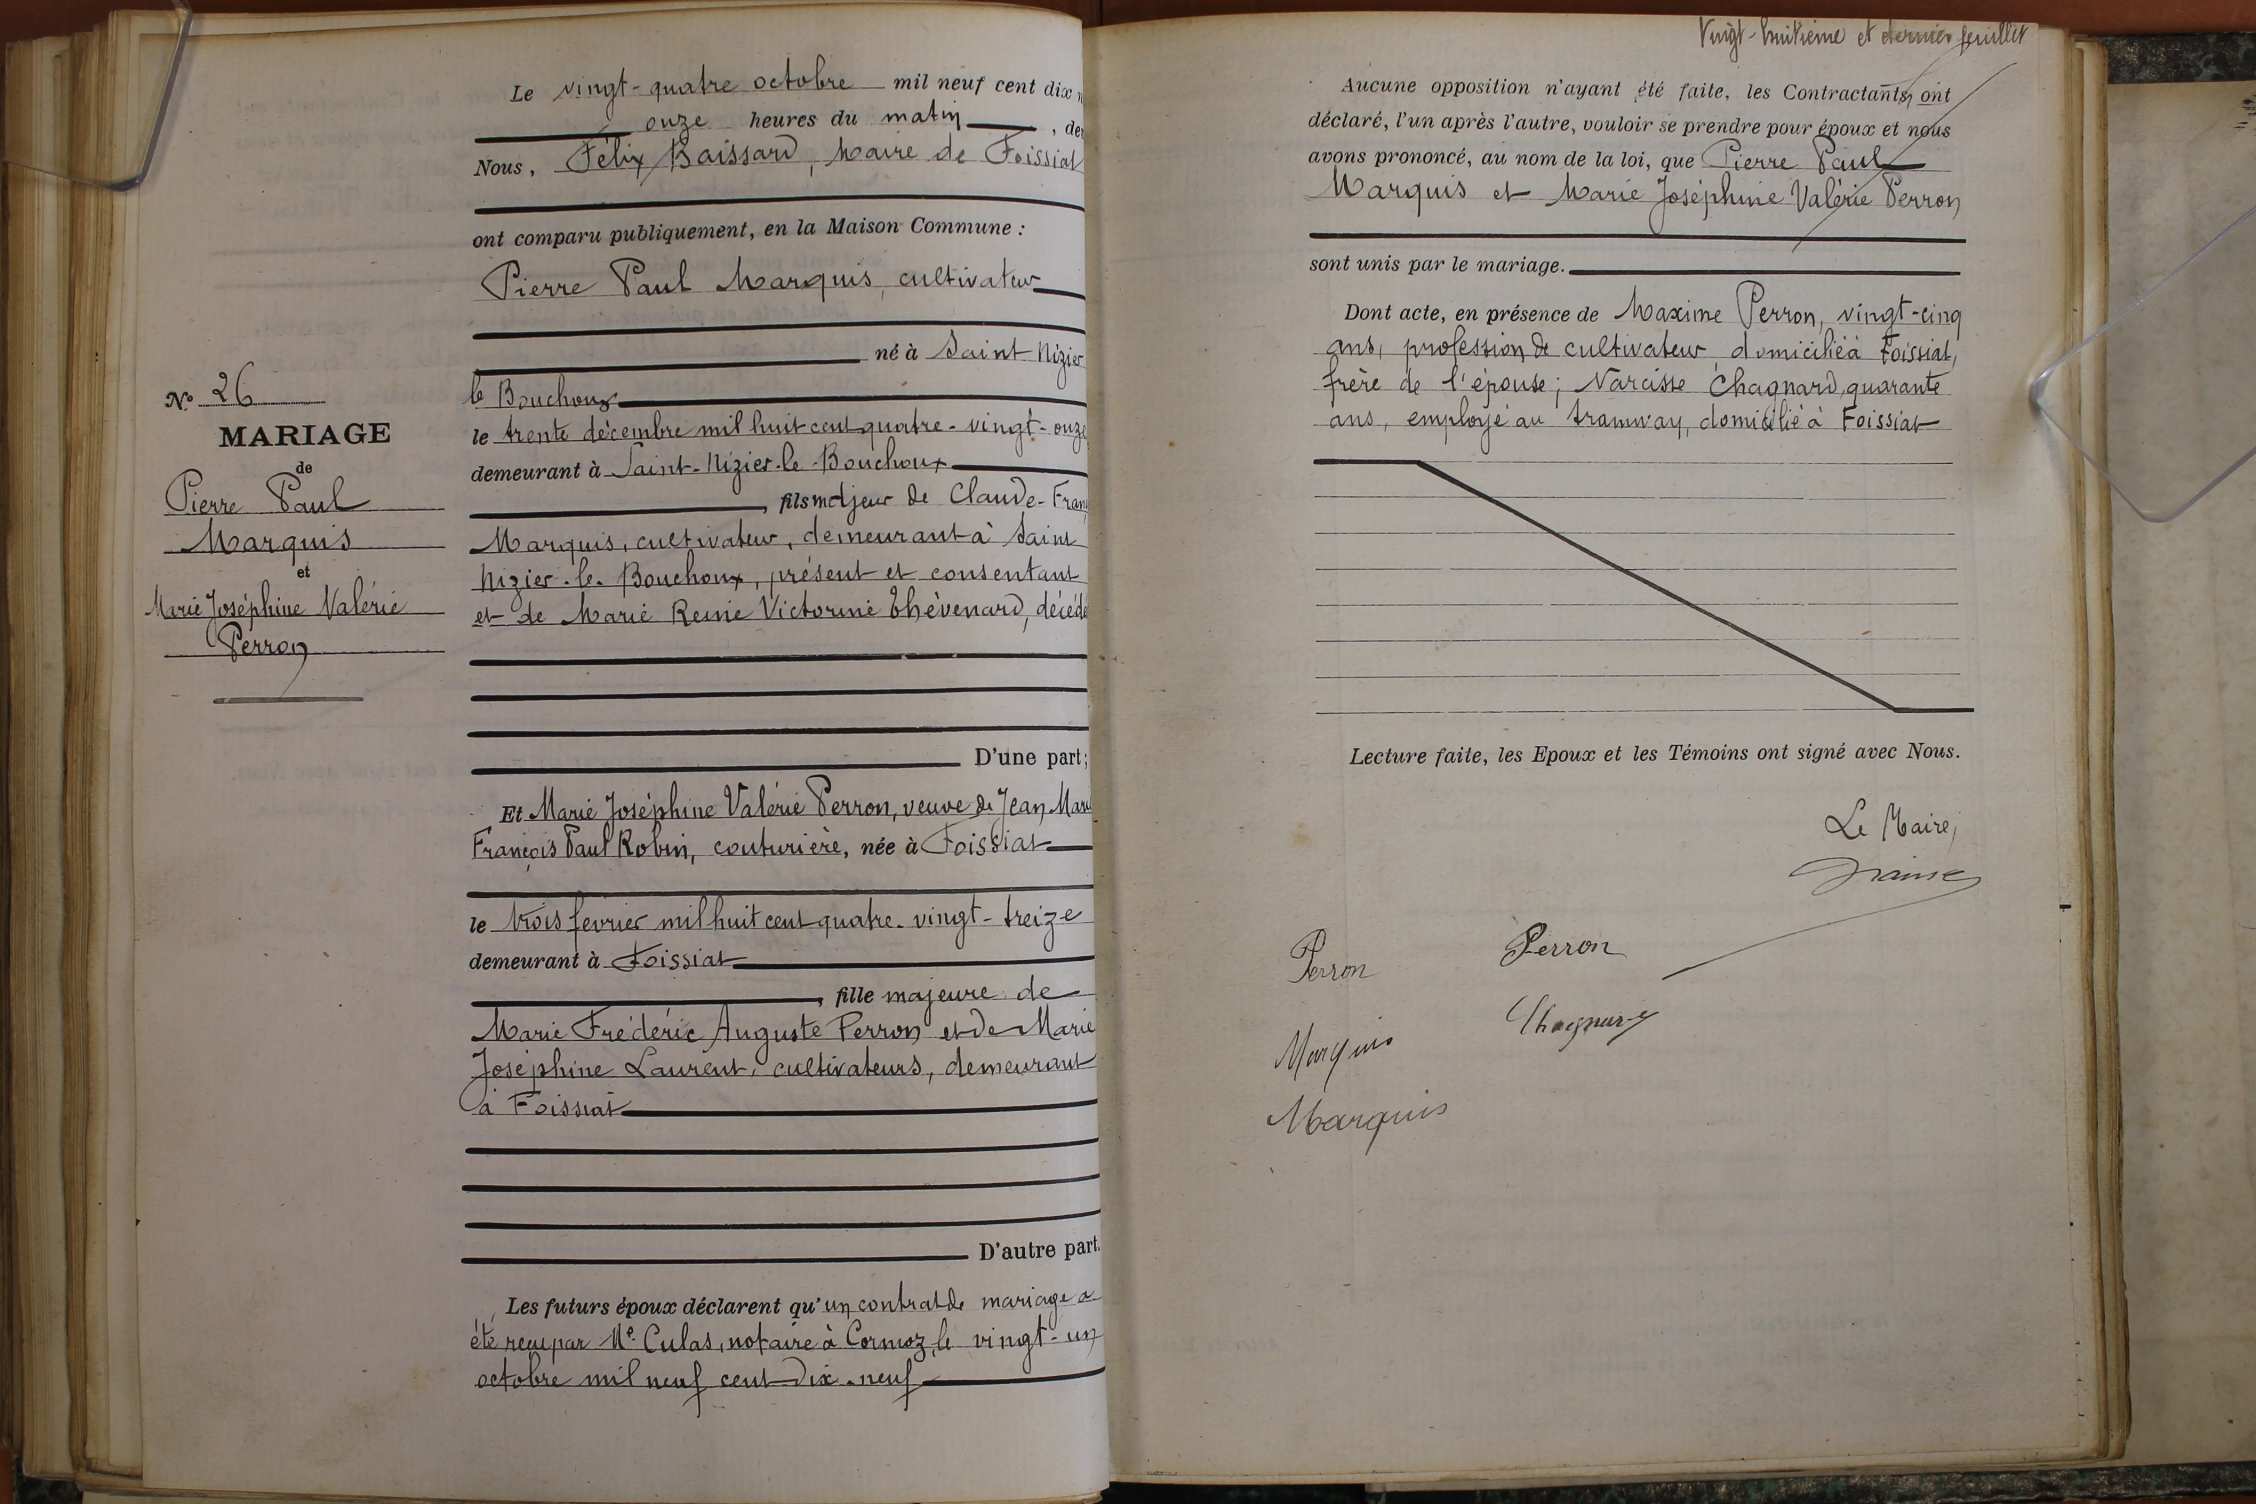 Le vingt-quatre octobre mil neuf cent dix
onze heures du matin, de
Nous, Félix Baissard, Maire de Foissiat
ont comparu publiquement, en la Maison Commune :
Pierre Paul Marquis, cultivateur
né à Saint Nizier
le Bouchoux
le trente décembre mil huit cent quatre-vingt-onze
demeurant à Saint-Nizier-le-Bouchoux
, fils majeur de Claude-Fran
Marquis, cultivateur, demeurant à Saint
Nizier-le-Bouchoux, présent et consentant
et de Marie Reine Victorine Thévenard, décédé
D'une part;
Et Marie Joséphine Valérie Perron, veuve de Jean Marie
François Paul Robin, couturière, née à Foissiat
le trois février mil huit cent quatre-vingt-treize
demeurant à Foissiat
, fille majeure de
Marie Frédéric Auguste Perron et de Marie
Joséphine Laurent, cultivateurs, demeurant
à Foissiat
D'autre part.
Les futurs époux déclarent qu'un contrat de mariage a
été reçu par Me Culas, notaire à Cormoz, le vingt-un
octobre mil neuf cent dix-neuf
No 26
MARIAGE
de
Pierre Paul
Marquis
et
Marie Joséphine Valérie
Perron
Vingt-huitième et dernier feuillet
Aucune opposition n'ayant été faite, les Contractants, ont
déclaré, l'un après l'autre, vouloir se prendre pour époux et nous
avons prononcé, au nom de la loi, que Pierre Paul
Marquis et Marie Joséphine Valérie Perron
sont unis par le mariage.
Dont acte, en présence de Maxime Perron, vingt-cinq
ans, profession de cultivateur domicilié à Foissiat,
frère de l'épouse; Narcisse Chagnard, quarante
ans, employé au tramway, domicilié à Foissiat
Lecture faite, les Epoux et les Témoins ont signé avec Nous.
Le Maire,
Perron
Perron
Chagnard
Marquis
Marquis